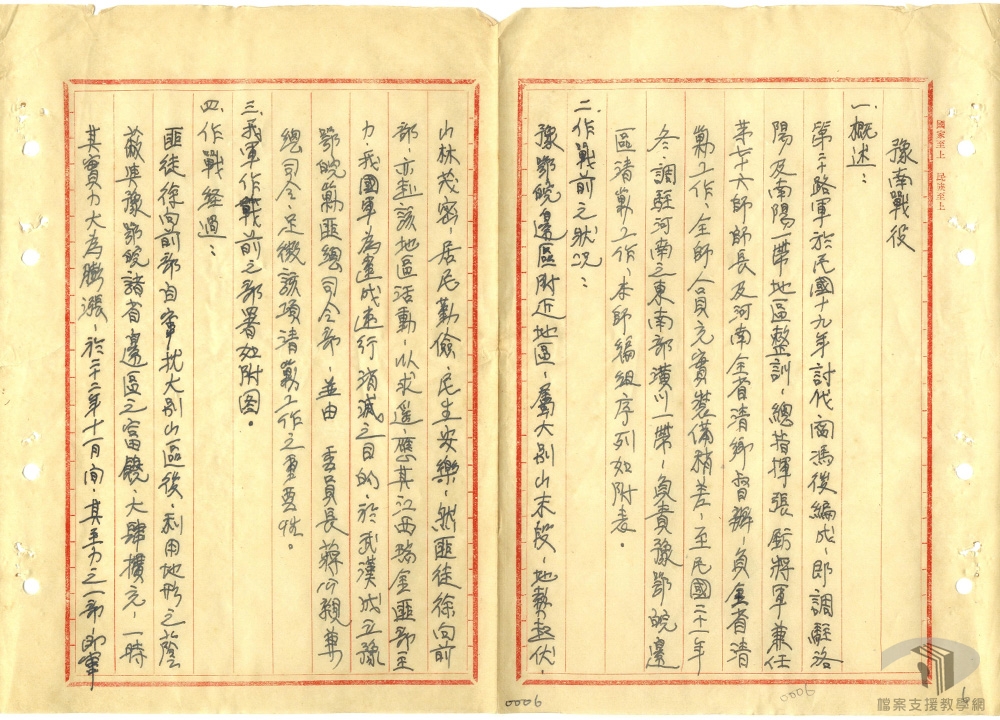 國家至上 民族至上
豫南戰役
一、概述：
第二十路軍於民國十九年討伐閻馮後編成，即調駐洛
陽及南陽一帶地區整訓，總指揮張鈁將軍兼任
第七十六師師長及河南全省清鄉督辦，負全省清
剿工作，全師人員充實裝備稍差，至民國二十一年
冬，調駐河南之東南部潢川一帶，負責豫鄂皖邊
區清剿工作，本師編組序列如附表。
二、作戰前之狀況：
豫鄂皖邊區附近地區，屬大別山末段，地勢起伏，
山林茂密，居民勤儉，民生安樂，然匪徒徐向前
部，亦赴該地區活動，以求遥應其江西瑞金匪部主
力，我國軍為達成速行消滅之目的，於武漢成立豫
鄂皖剿匪總司令部，並由 委員長蔣公親兼
總司令，足徵該項清剿工作之重要性。
三、我軍作戰前之部署如附图。
四、作戰経過：
匪徒徐向前部自竄扰大別山區後，利用地形之蔭
蔽與豫鄂皖諸省邊區之富饒，大肆擴充，一時
其實力大為膨漲，於二十二年十一月間，其主力之一部即竄
0006
0006
6
檔案支援教學網